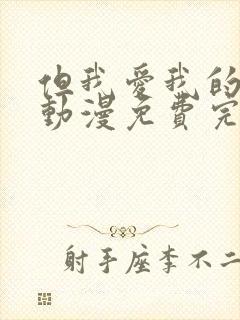 但我愛我的
動漫免費完
射手座李不二